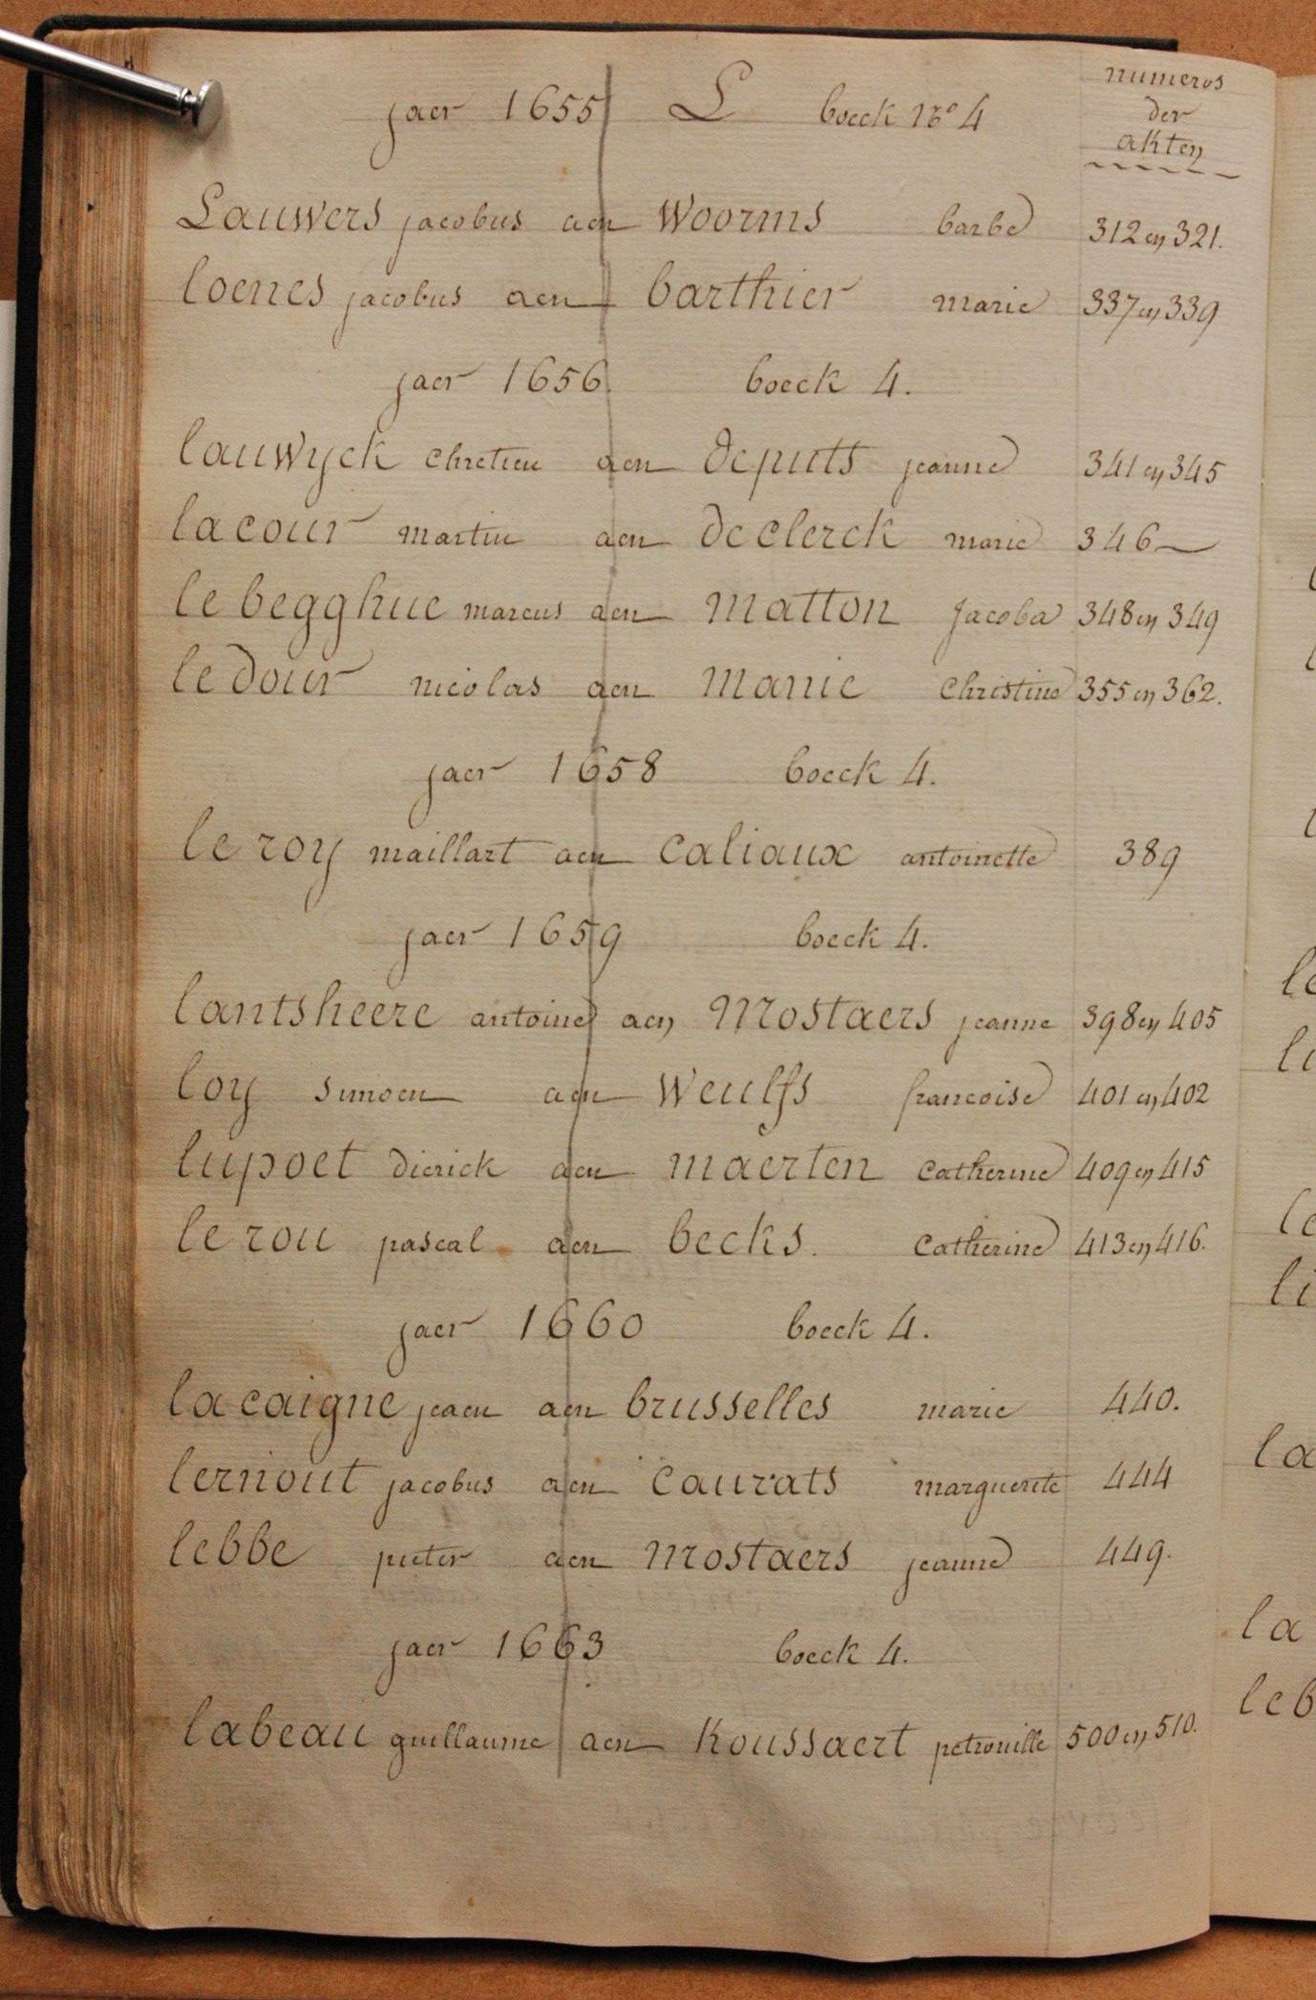 jaer 1655 L boeck N° 4
numeros
der
akten
Lauwers jacobus aen Woorms barbe 312 en 321.
loenes jacobus aen barthier marie 337 en 339
jaer 1656 boeck 4.
lauwyck chretien aen deputs jeanne 341 en 345
lacour martin aen declerck marie 346
le begghue marcus aen matton jacoba 348 en 349
le dour nicolas aen manie christine 355 en 362.
jaer 1658 boeck 4.
le roy maillart aen caliaux antoinette 389
jaer 1659 boeck 4.
lantsheere antoine aen Mostaers jeanne 398 en 405
loy simoen aen weulfs francoise 401 en 402
lupoet dierick aen maerten catherine 409 en 415
le rou pascal aen becks. catherine 413 en 416.
jaer 1660 boeck 4.
lacaigne jeaen aen brusselles marie 440.
lernout jacobus aen caurats marguerite 444
lebbe pieter aen Mostaers jeanne 449.
jaer 1663 boeck 4.
labeau guillaume aen Koussaert petronille 500 en 510.